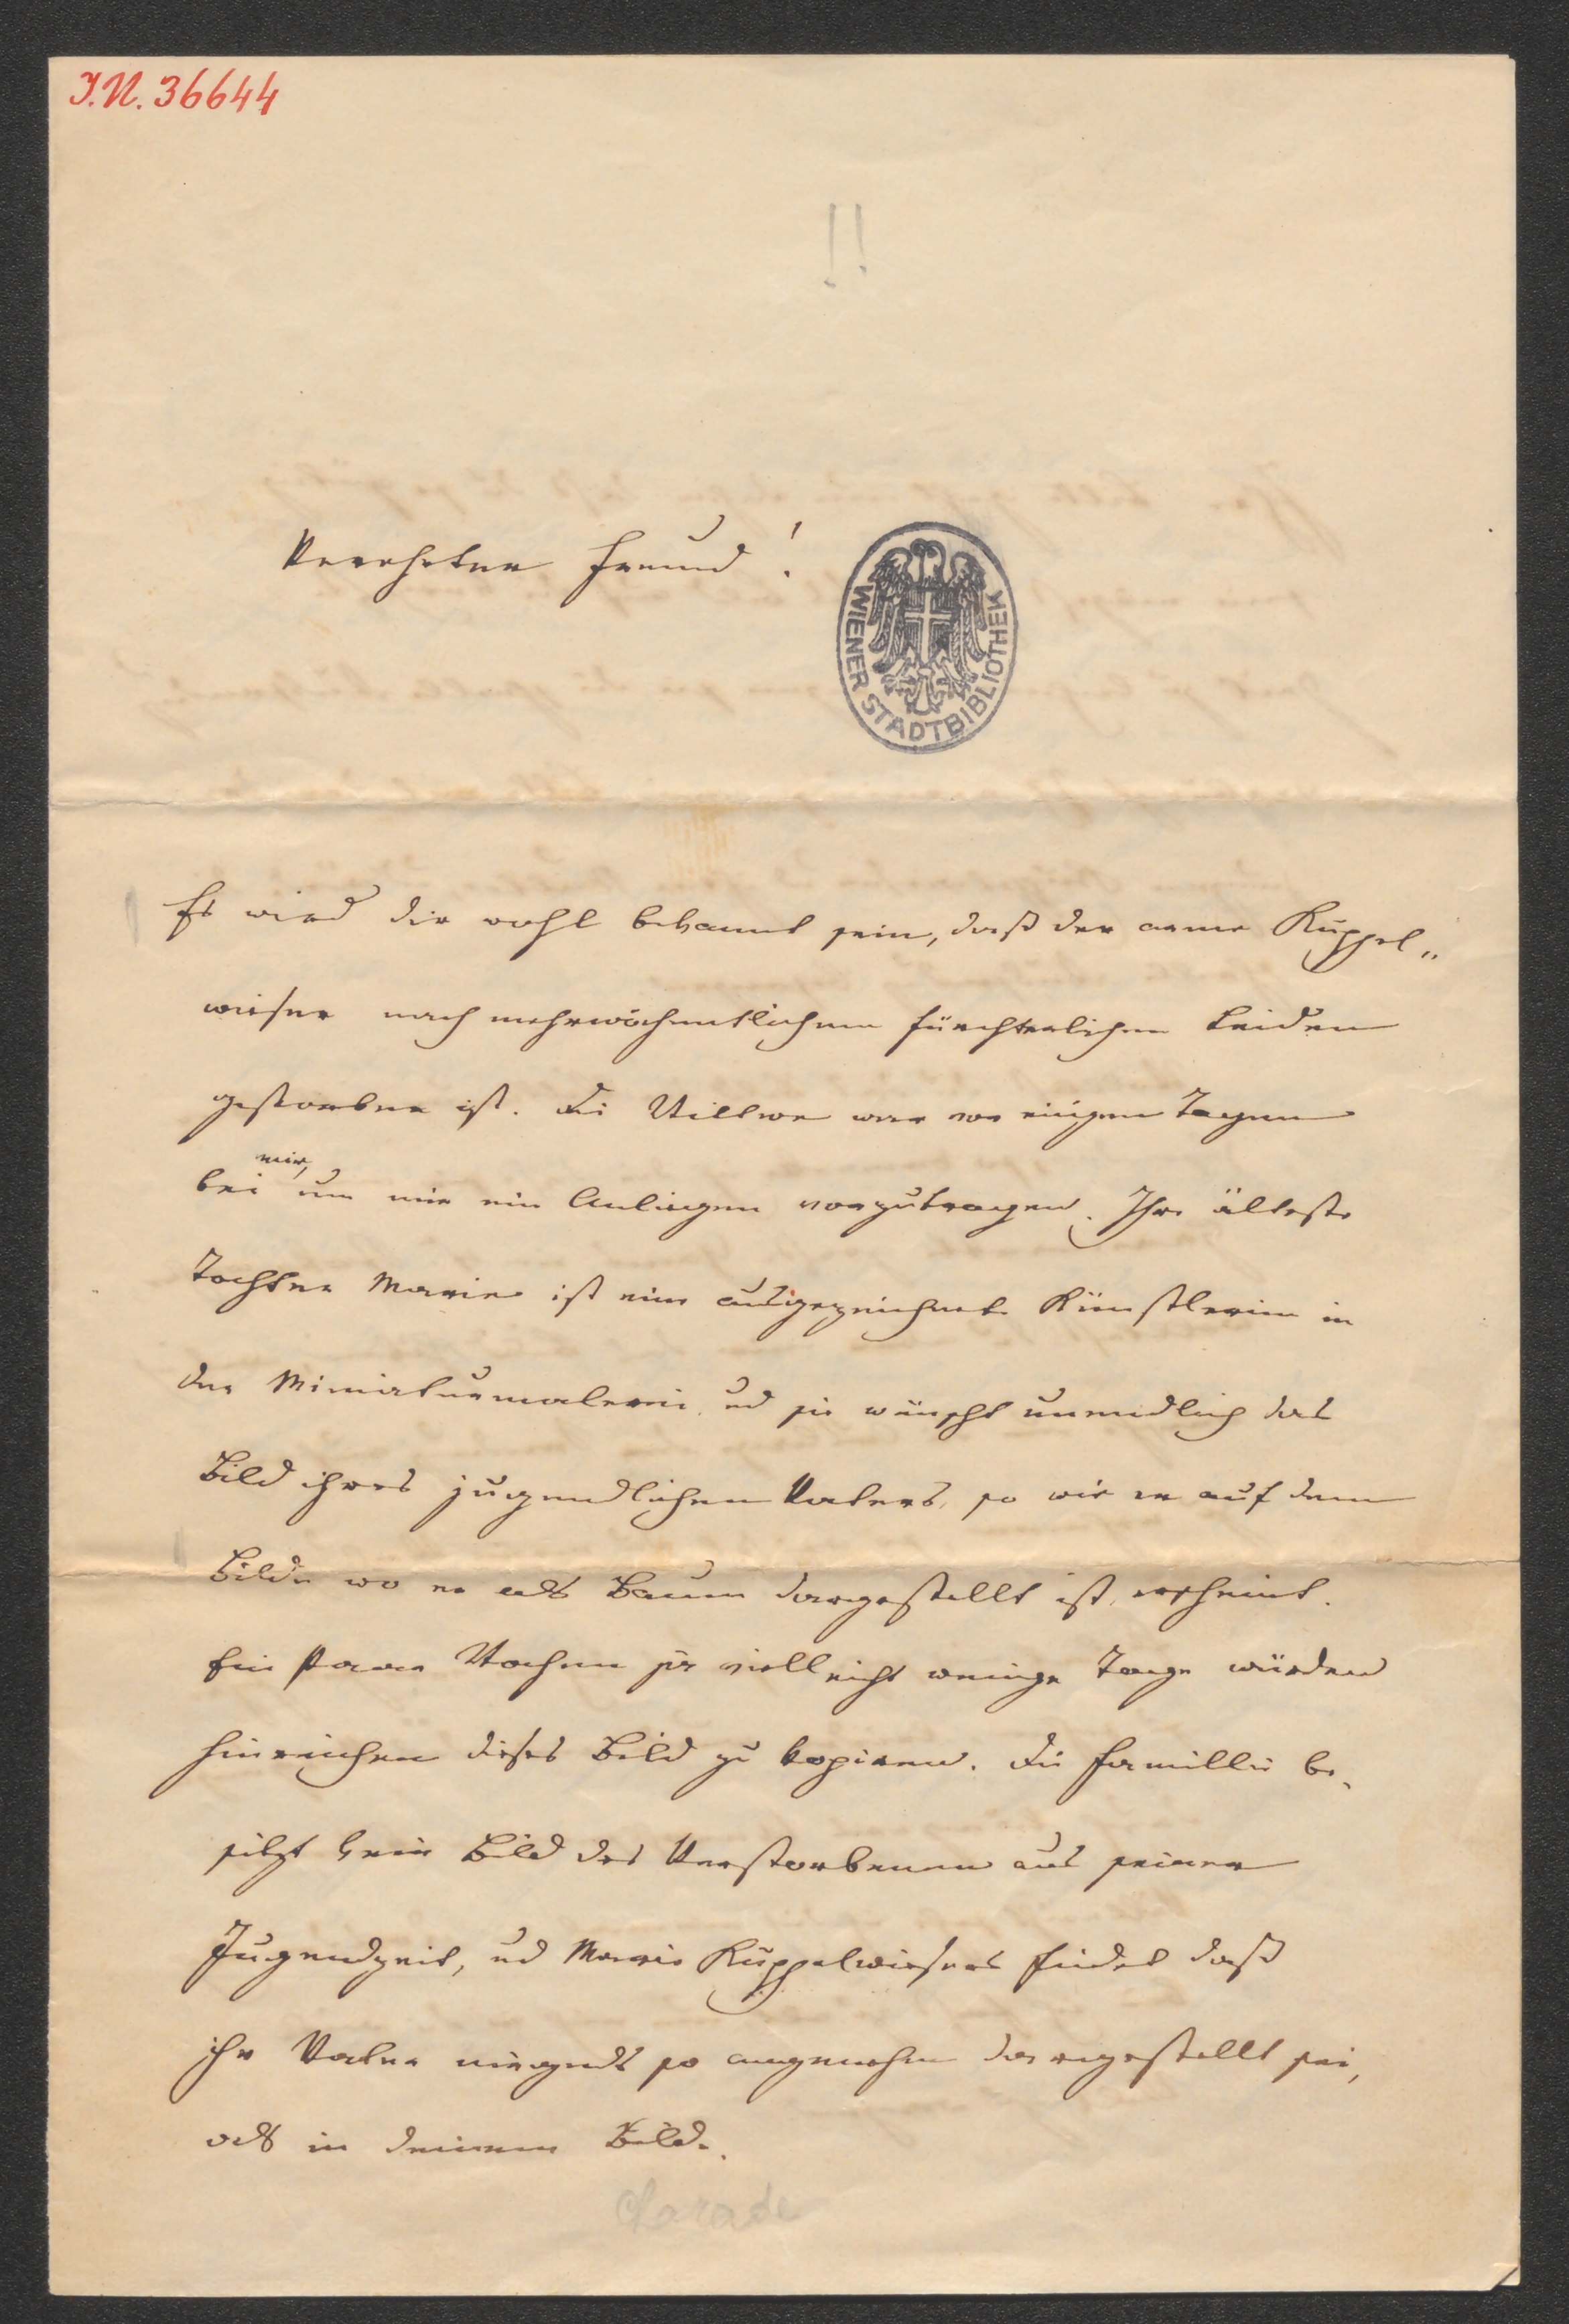 I.N. 36644
!!
Verehrter Freund!
WIENER STADTBIBLIOTHEK
Es wird dir wohl bekannt sein, daß der arme Kuppel„
wieser nach mehrwöchentlichem fürchterlichen Leiden
gestorben ist. Die Wittwe war vor einigen Tagen
bei mir, um mir ein Anliegen vorzutragen. Ihre älteste
Tochter Marie ist eine ausgezeichnete Künstlerin in
der Miniaturmalerei und sie wünscht unendlich das
Bild ihres jugendlichen Vaters, so wie er auf dem
Bilde wo er als Baum dargestellt ist, erscheint.
Ein Paar Wochen ja vielleicht wenige Tage würden
hinreichen dieses Bild zu kopieren. Die Famillie be„
sitzt kein Bild des Verstorbenen aus seiner
Jugendzeit, und Marie Kuppelwieser findet daß
ihr Vater nirgends so angenehm dargestellt sei,
als in deinem Bilde.
Charade